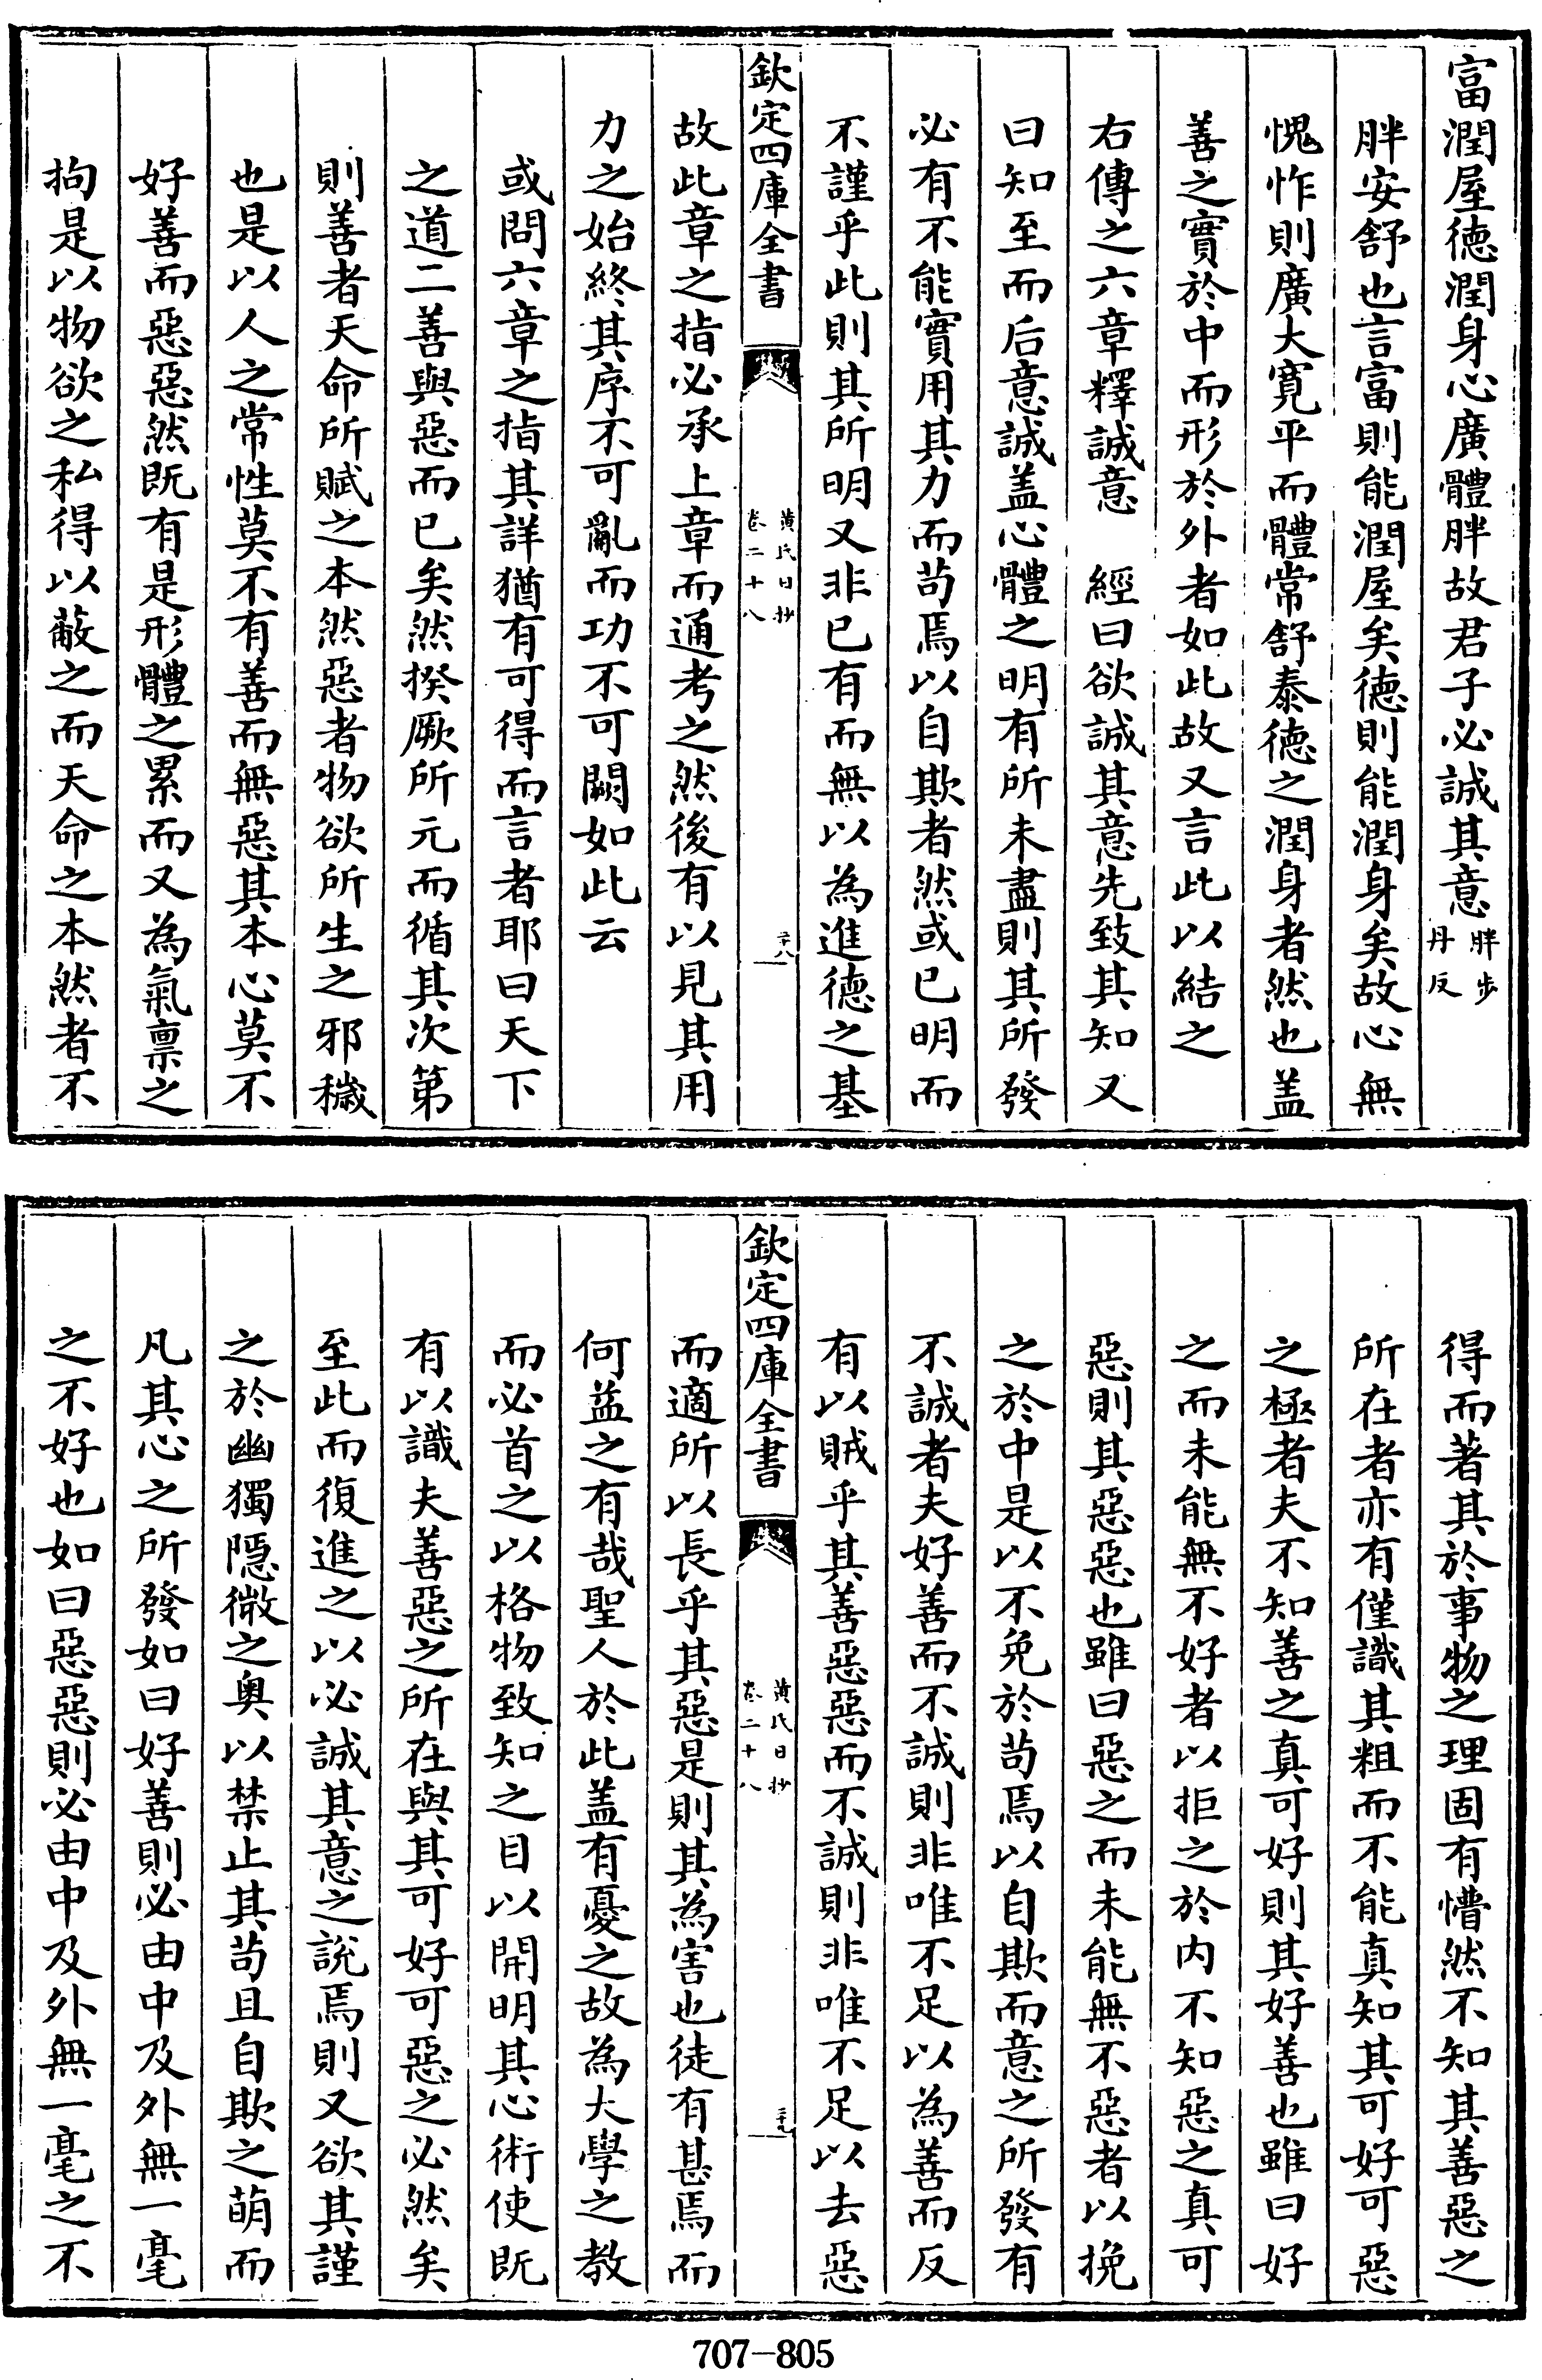 富潤屋徳潤身心廣體胖故君子必誠其意胖步丹反
胖安舒也言富則能潤屋矣徳則能潤身矣故心無
愧怍則廣大寛平而體常舒泰徳之潤身者然也盖
善之實於中而形於外者如此故又言此以結之
右傳之六章釋誠意　經曰欲誠其意先致其知又
曰知至而后意誠盖心體之明有所未盡則其所發
必有不能實用其力而茍焉以自欺者然或已明而
不謹乎此則其所明又非已有而無以為進徳之基
欽定四庫全書
黃氏日抄
卷二十八
二十八
故此章之指必承上章而通考之然後有以見其用
力之始終其序不可亂而功不可闕如此云
或問六章之指其詳猶有可得而言者耶曰天下
之道二善與惡而已矣然揆厥所元而循其次第
則善者天命所賦之本然惡者物欲所生之邪穢
也是以人之常性莫不有善而無惡其本心莫不
好善而惡惡然既有是形體之累而又為氣禀之
拘是以物欲之私得以蔽之而天命之本然者不
得而著其於事物之理固有懵然不知其善惡之
所在者亦有僅識其粗而不能真知其可好可惡
之極者夫不知善之真可好則其好善也雖曰好
之而未能無不好者以拒之於内不知惡之真可
惡則其惡惡也雖曰惡之而未能無不惡者以挽
之於中是以不免於茍焉以自欺而意之所發有
不誠者夫好善而不誠則非唯不足以為善而反
有以賊乎其善惡惡而不誠則非唯不足以去惡
欽定四庫全書
黃氏日抄
卷二十八
二十九
而適所以長乎其惡是則其為害也徒有甚焉而
何益之有哉聖人於此盖有憂之故為大學之教
而必首之以格物致知之目以開明其心術使既
有以識夫善惡之所在與其可好可惡之必然矣
至此而復進之以必誠其意之說焉則又欲其謹
之於幽獨隱微之奥以禁止其茍且自欺之萌而
凡其心之所發如曰好善則必由中及外無一毫
之不好也如曰惡惡則必由中及外無一毫之不
707—805